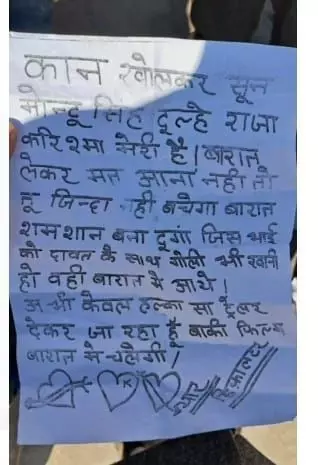 कान खोलकर सून
मोन्टू सिंह दूल्हे राजा
करिश्मा मेरी है। बारात
लेकर मत आना नही तो
तू जिन्दा नही बचेगा बारात
शमशान बना दूगां जिस भाई
को दावत के साथ गोली भी खानी
हो वही बारात मै आये।
अभी केवल हल्का सा ट्रेलर
देकर जा रहा हूँ बाकी फिल्म
बारात मे चलेगी।